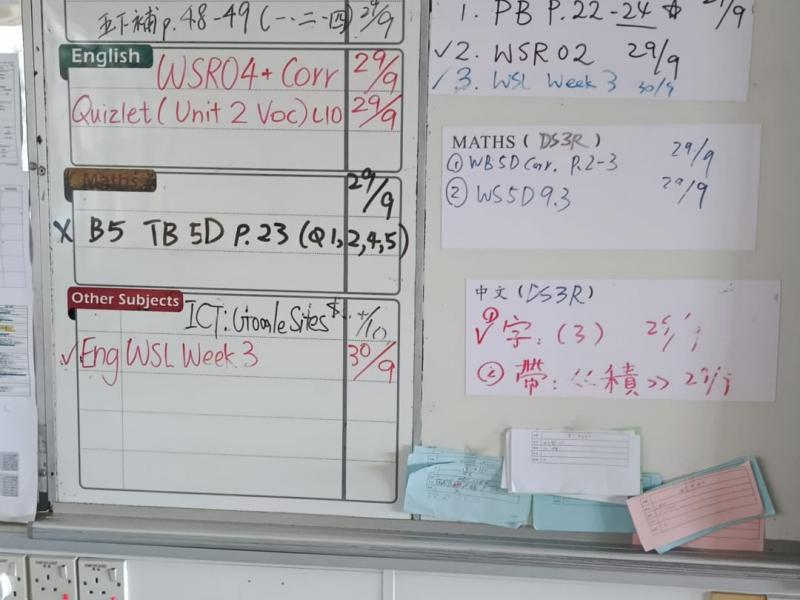 五下補 p.48-49 (一、二、四) 29/9
English
WSR04 + Corr 29/9
Quizlet (Unit 2 Voc) L10 29/9
Maths 29/9
X B5 TB 5D P.23 (Q1,2,4,5)
Other Subjects
ICT: Google Sites
✓ Eng WSL Week 3 30/9
1. PB P.22-24
✓2. WSR02 29/9
✓3. WSL Week 3 30/9
MATHS (DS3R)
① WB5D Corr. P.2-3 29/9
② WS5D9.3 29/9
中文 (DS3R)
① ✓ 字: (3)
② 帶: 《積》